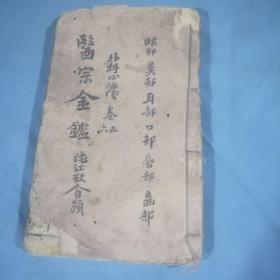 眼部 鼻部 耳部 口部 唇部 齒部
外科心法 卷五六
醫宗金鑑